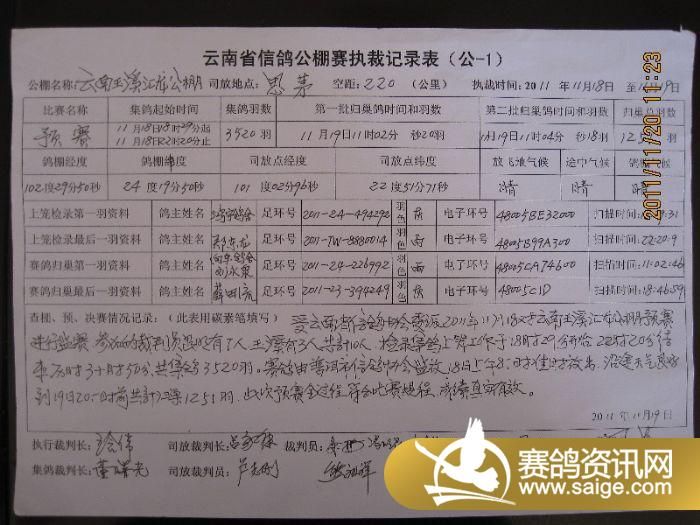 云南省信鸽公棚赛执裁记录表（公-1）
公棚名称：云南玉溪汇龙公棚 司放地点：思茅 空距：220（公里） 执裁时间：2011年11月18日至11月19日
比赛名称 集鸽起始时间 集鸽羽数 第一批归巢鸽时间和羽数 第二批归巢鸽时间和羽数 归巢总羽数
预赛 11月18日18时29分起 3520羽 11月19日11时02分 秒20羽 11月19日11时04分 秒18羽 125 羽
11月18日22时20分止
鸽棚经度 鸽棚纬度 司放点经度 司放点纬度 放飞地气候 途中气候 鸽棚气候
102度29分50秒 24度19分50秒 101度02分96秒 22度51分71秒 晴 晴 晴
上笼检录第一羽资料 鸽主姓名 足环号 2011-24-494292 羽色 电子环号 48005BE32000 扫描时间: :31
上笼检录最后一羽资料 鸽主姓名 足环号 2011-TW-8880014 羽色 电子环号 48005B99A300 扫描时间: 22:20:9
赛鸽归巢第一羽资料 鸽主姓名 足环号 2011-24-226992 羽色 电子环号 48005CA74600 扫描时间: 11:02:46
赛鸽归巢最后一羽资料 鸽主姓名 足环号 2011-23-394249 羽色 电子环号 48005C1D 扫描时间: 18:46:59
查棚、预、决赛情况记录：（此表用碳素笔填写） 受云南省信鸽协会委派2011年11月18日对云南玉溪汇龙公棚预赛
进行监赛，参加的裁判员 有7人玉溪有3人共计10人，检录集鸽上笼工作于18时29分开始22时20分结
束历时3小时51分，共集鸽3520羽。赛鸽由 市信鸽协会监放18日上午8 时 放出，沿途天气良好
到19日20 时前共计 1251羽，此次预赛全过程符合比赛规程，成绩真实有效。
2011年11月19日
执行裁判长： 司放裁判长： 裁判员：
集鸽裁判长： 司放裁判员：
2011/11/20 11:23
赛鸽资讯网
www.saige.com